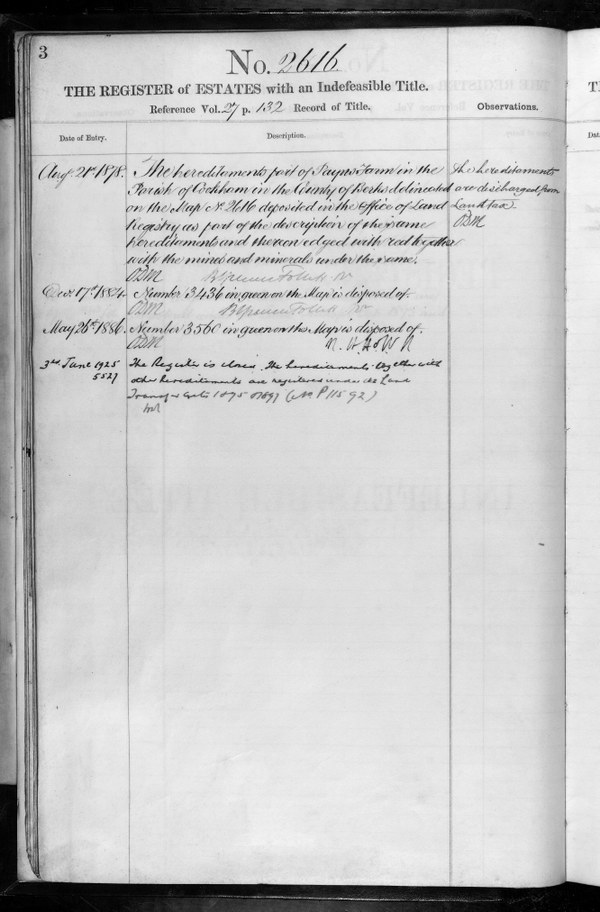 3
No. 2616
THE REGISTER of ESTATES with an Indefeasible Title.
Reference Vol. 27 p. 132 Record of Title.
Observations.
Date of Entry.
Description.
Augt. 21st 1878.
The hereditaments part of Payn's Farm in the
Parish of Cookham in the County of Berks delineated
on the Map No. 2616 deposited in the Office of Land
Registry as part of the description of the same
hereditaments and thereon edged with red together
with the mines and minerals under the same.
The hereditaments
are discharged from
Land tax.
Decr. 17th 1884.
Number 3436 in green on the Map is disposed of.
May 26th 1886.
Number 3560 in green on the Map is disposed of.
3rd June 1925
5527
The Register is closed. The hereditaments together with
other hereditaments are registered under the Land
Transfer Acts 1875 & 1897 (No. P 11592)